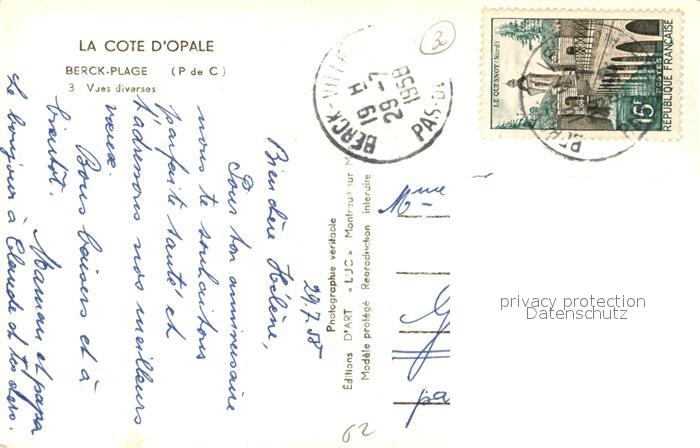 LA COTE D'OPALE
BERCK-PLAGE (P de C)
3 Vues diverses
29.7.58
Bien chère Hélène,
Pour ton anniversaire
nous te souhaitons
parfaite santé et
t'adressons nos meilleurs
vœux.
Bons baisers et à
bientôt.
Maman et papa
Le bonjour à Claude et
Photographie véritable
Éditions D'ART «LUC» Montreuil sur M
Modèle protégé Reproduction interdite
30
BERCK-VILLE
PAS-DE
19 H
29-7
1958
LE QUESNOY (Nord)
15F
POSTES
REPUBLIQUE FRANÇAISE
Mme
pa
62
privacy protection
Datenschutz